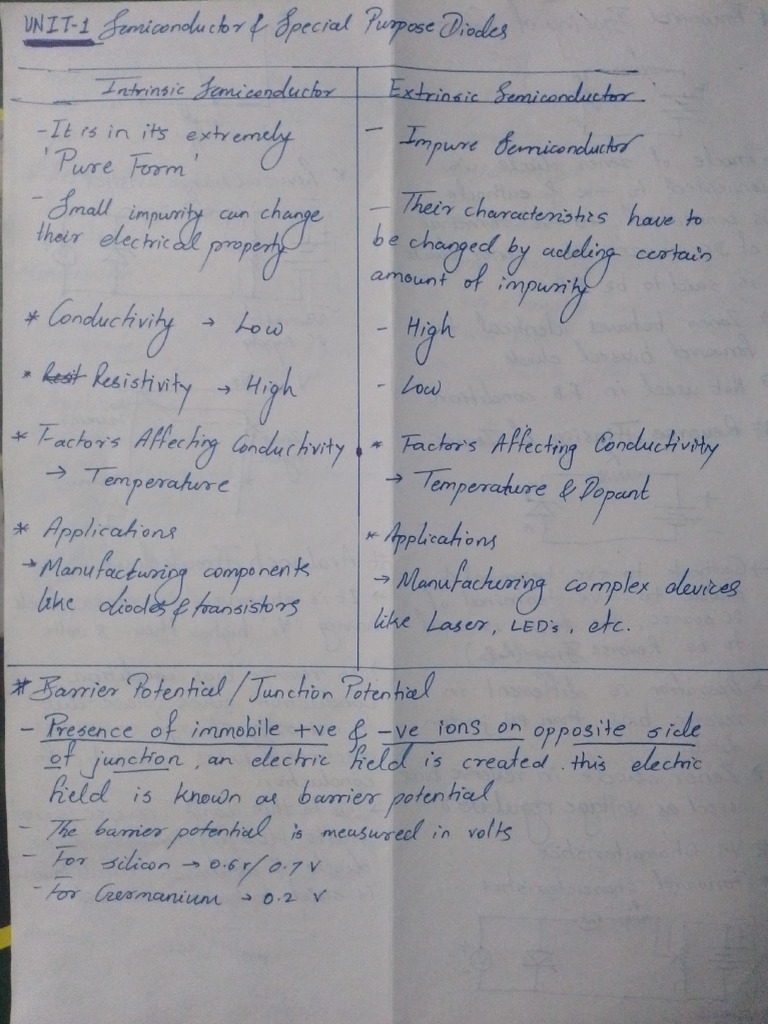 UNIT-1 Semiconductor & Special Purpose Diodes
Intrinsic Semiconductor
- It is in its extremely
'Pure Form'
- Small impurity can change
their electrical property
* Conductivity → Low
* Resistivity → High
* Factors Affecting Conductivity
→ Temperature
* Applications
→ Manufacturing components
like diodes & transistors
Extrinsic Semiconductor
- Impure Semiconductor
- Their characteristics have to
be changed by adding certain
amount of impurity
- High
- Low
* Factors Affecting Conductivity
→ Temperature & Dopant
* Applications
→ Manufacturing complex devices
like Laser, LED's, etc.
* Barrier Potential / Junction Potential
- Presence of immobile +ve & -ve ions on opposite side
of junction, an electric field is created. this electric
field is known as barrier potential
- The barrier potential is measured in volts
- For silicon → 0.6v/0.7 V
- For Germanium → 0.2 V